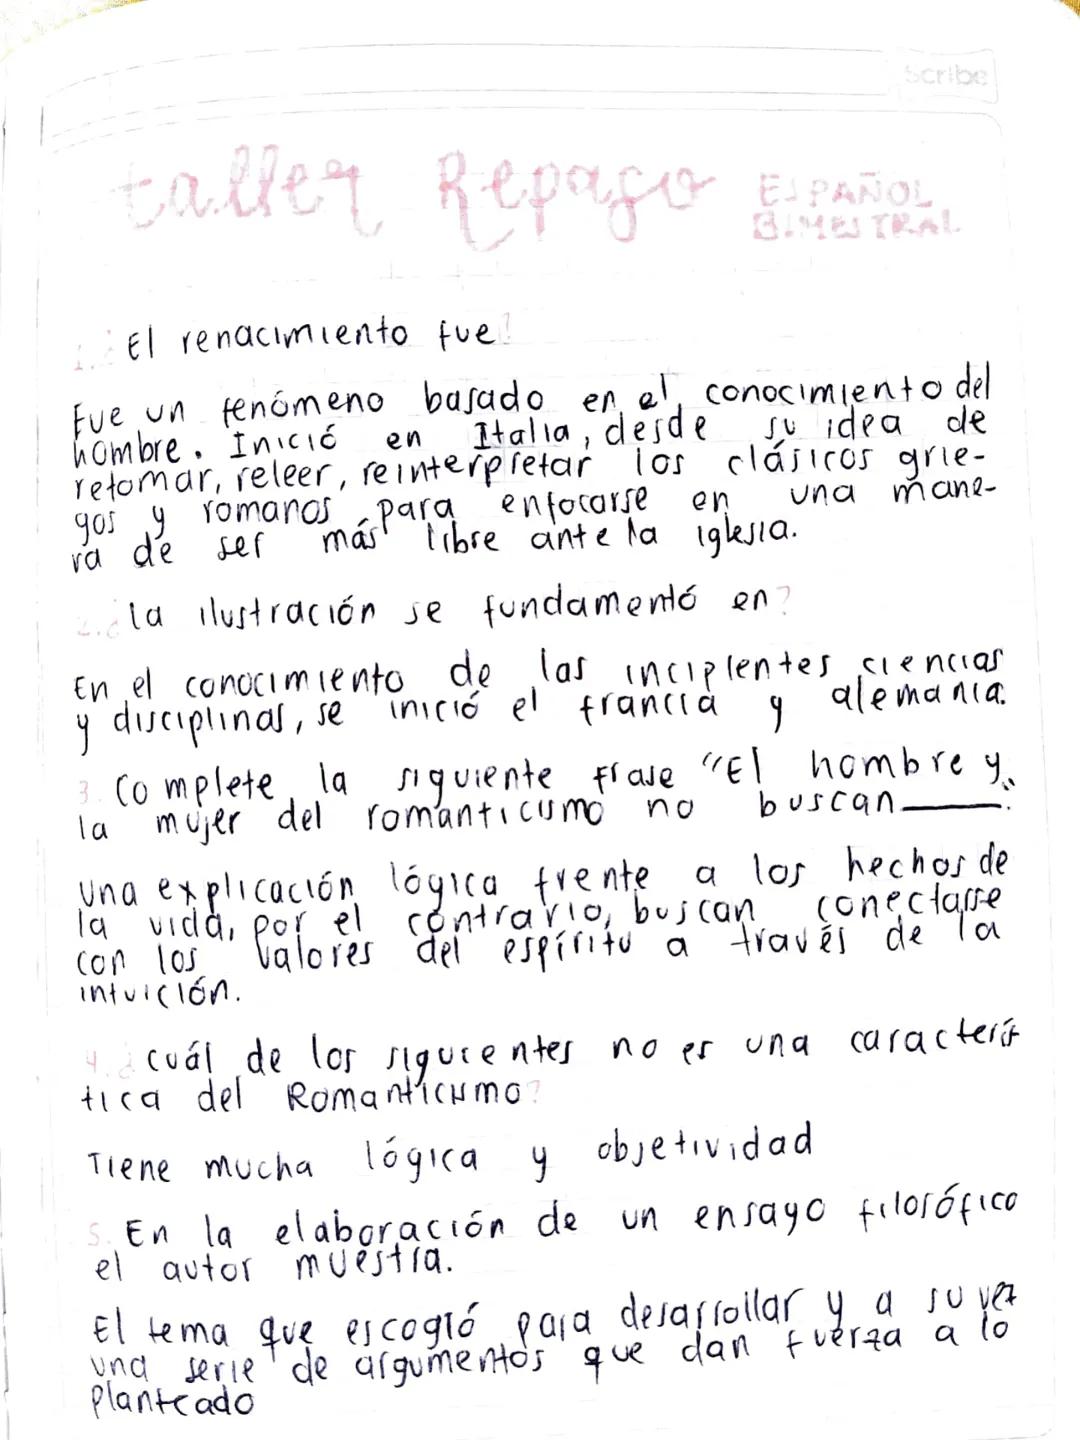 Scribe
taller Repaso ESPAÑOL
BIMESTRAL
1.¿ El renacimiento fue?
Fue un fenómeno basado en el conocimiento del
hombre. Inició en Italia, desde su idea de
retomar, releer, reinterpretar los clásicos grie-
gos y romanos para enfocarse en una mane-
ra de ser más libre ante la iglesia.
2.¿ la ilustración se fundamentó en?
En el conocimiento de las incipientes ciencias
y disciplinas, se inició el francia y alemania.
3. Complete la siguiente frase "El hombre y
la mujer del romanticismo no buscan ____".
una explicación lógica frente a los hechos de
la vida, por el contrario, buscan conectarse
con los valores del espíritu a través de la
intuición.
4.¿ cuál de los sigucentes no es una caracterís
tica del Romanticismo?
Tiene mucha lógica y objetividad
5. En la elaboración de un ensayo filosófico
el autor muestra.
El tema que escogió para desarrollar y a su vez
una serie de argumentos que dan fuerza a lo
planteado